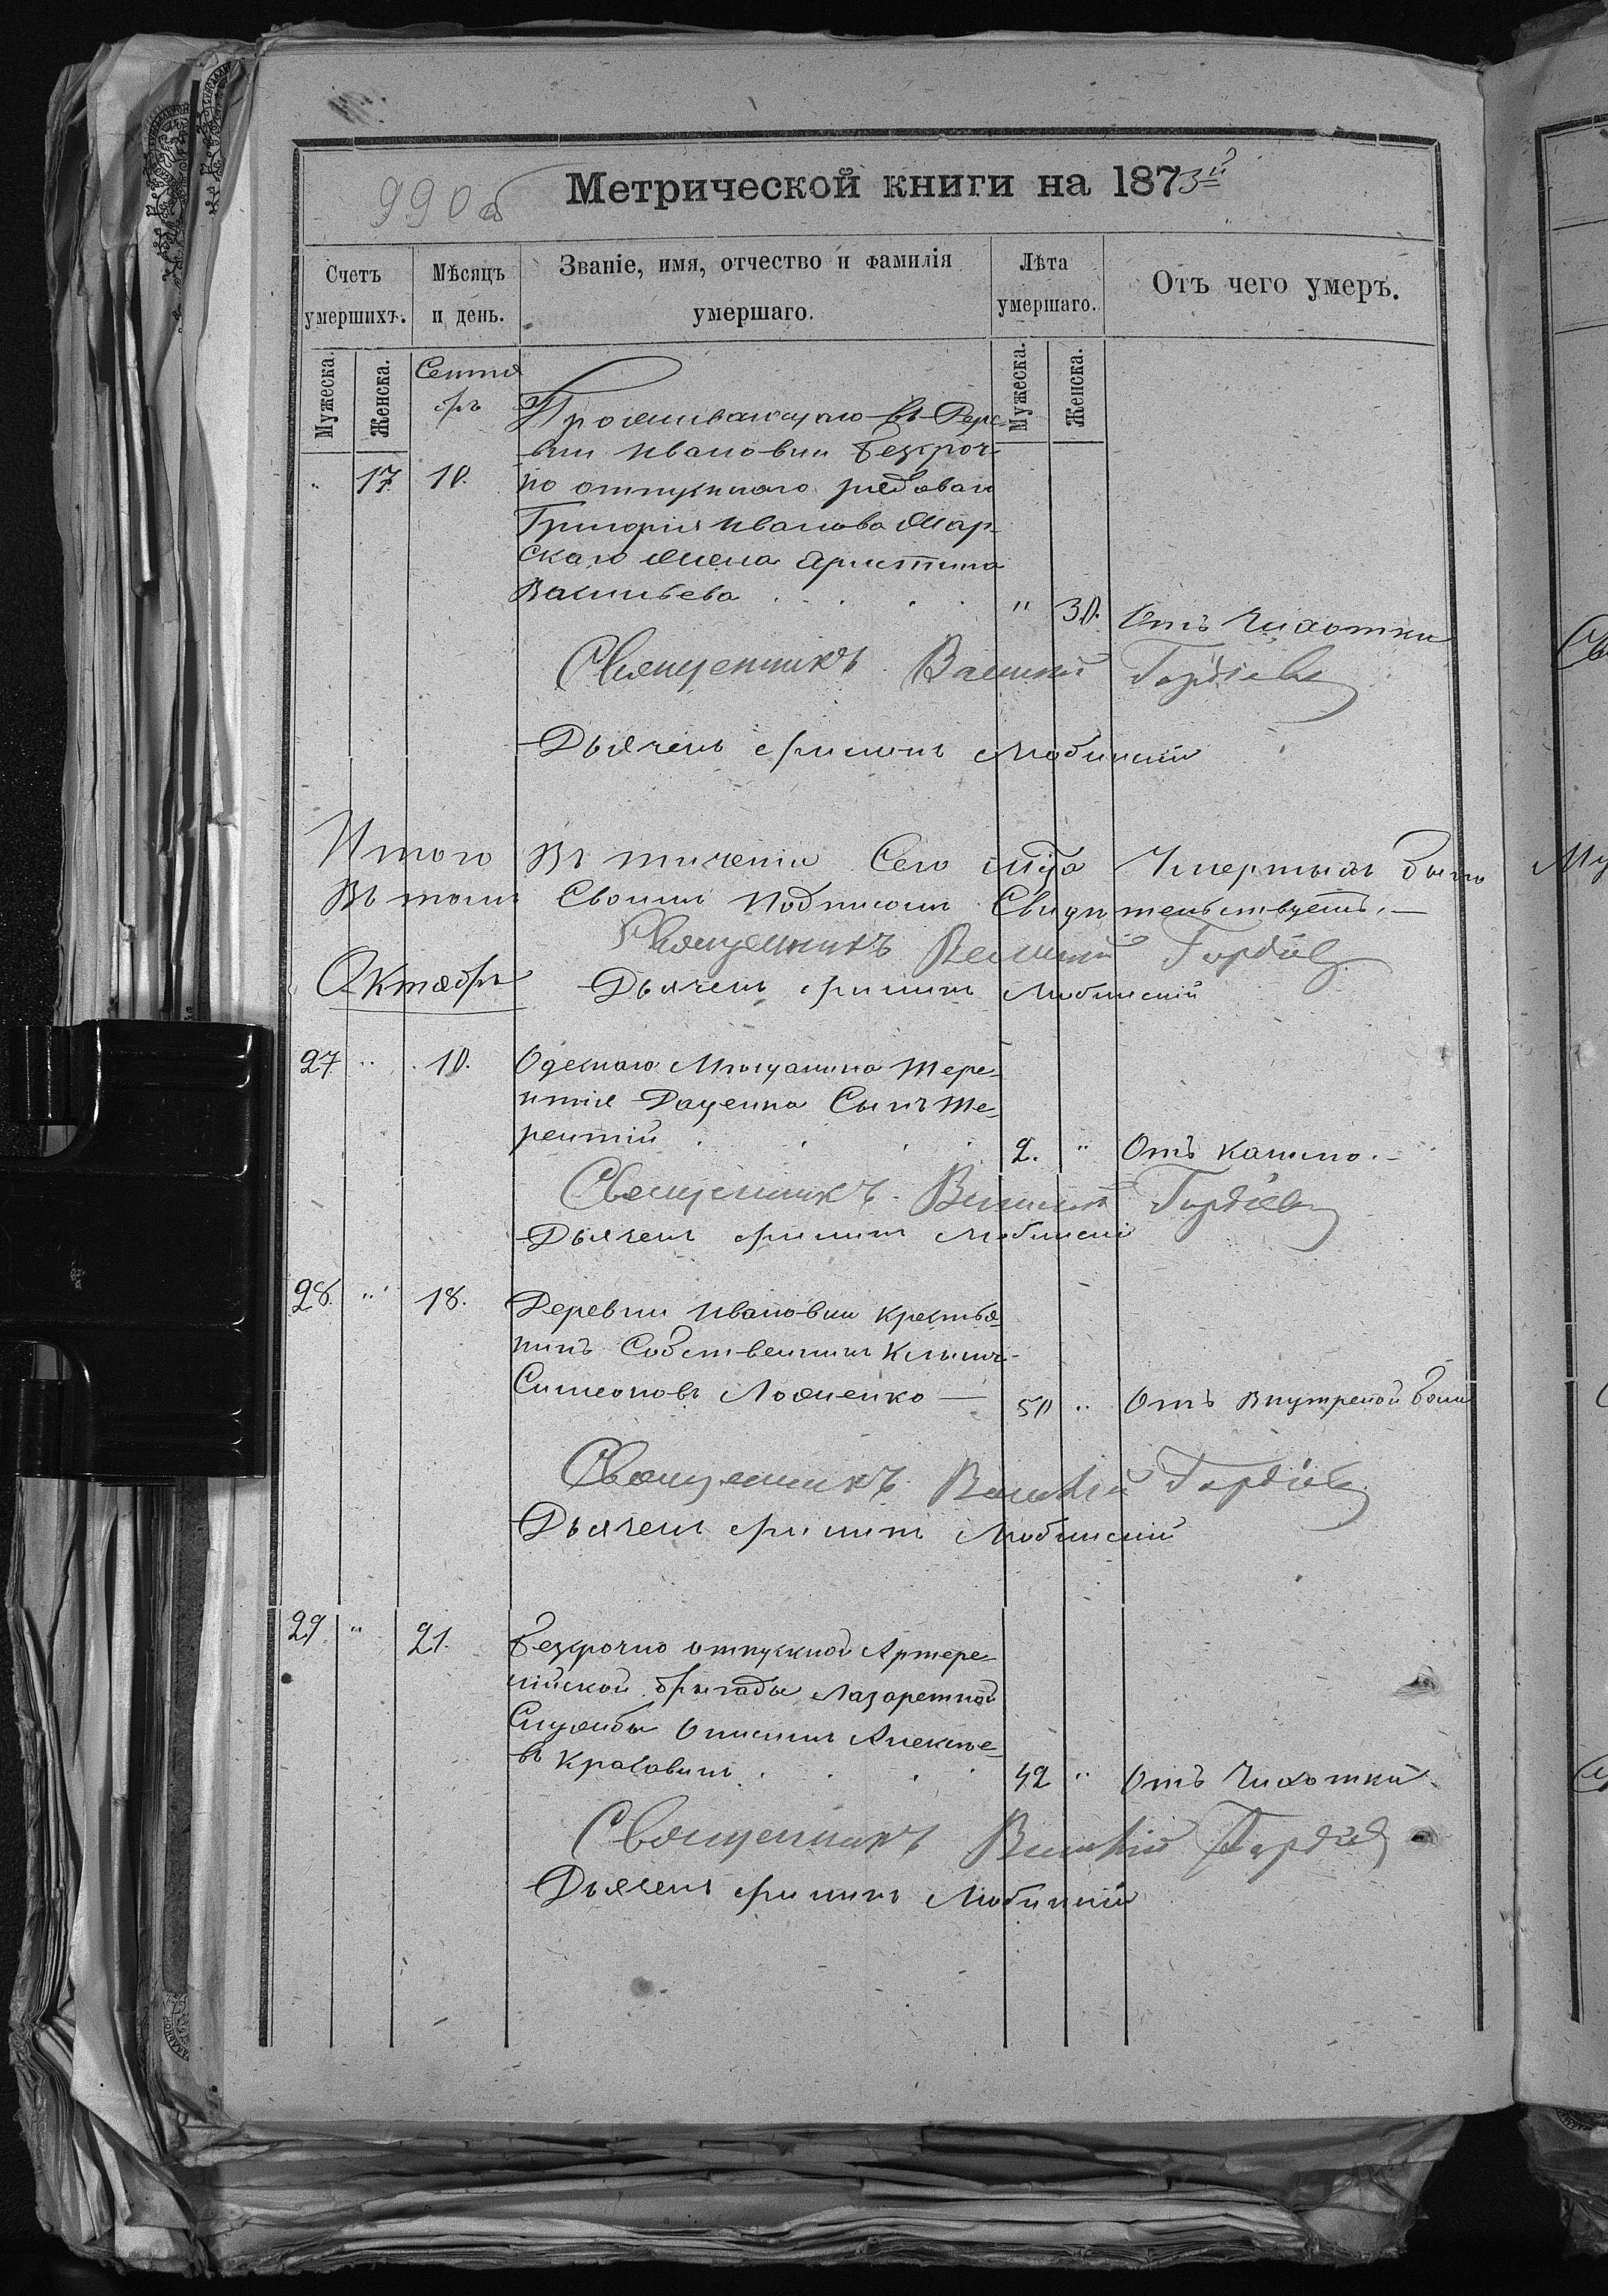 990 об
Метрической книги на 1873й
Счетъ умершихъ.
Мѣсяцъ и день.
Званіе, имя, отчество и фамилія умершаго.
Лѣта умершаго.
Отъ чего умеръ.
Мужеска.
Женска.
Мужеска.
Женска.
Сентя
брь
Проживающаго въ Дере-
вни Ивановки безсроч-
" 17. 10. но отпускнаго рядоваго
Григорія Иванова Мар-
скаго жена Христина
Васильева . . . . " 30. Отъ Чихотки
Священникъ Василій Гордіевъ
Дьячекъ Филипъ Любинскій
Итого Въ теченіи Сего м-ца Умершихъ было
Въ томъ Своимъ Подписомъ Свидѣтельствуетъ. —
Священникъ Василій Гордіевъ
Октябрь Дьячекъ Филипъ Любинскій
27 " 10. Одескаго Мѣщанина Тере-
нтія Даценка Сынъ Те-
рентій . . . . 2. " Отъ кашлю. —
Священникъ Василій Гордіевъ
Дьячекъ Филипъ Любинскій
28. " 18. Деревни Ивановки Крестья-
нинъ Собственникъ
Симеоновъ — 50 " Отъ Внутреной боли
Священникъ Василій Гордіевъ
Дьячекъ Филипъ Любинскій
29 " 21. Безсрочно отпускной Артере-
лійской бригады Лазаретной
Службы Алексѣе-
въ . . . . 42 " Отъ Чихотки.
Священникъ Василій Гордіевъ
Дьячекъ Филипъ Любинскій